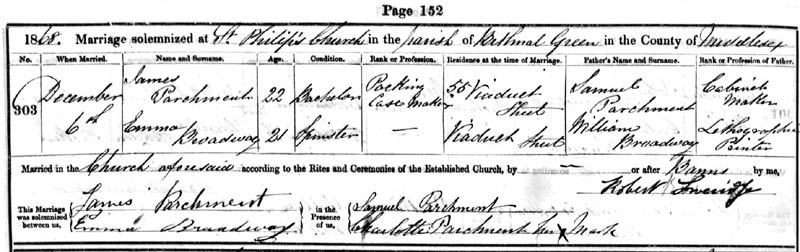 Page 152
1868. Marriage solemnized at St Philip's Church in the parish of Bethnal Green in the County of Middlesex
No. When Married. Name and Surname. Age. Condition. Rank or Profession. Residence at the time of Marriage. Father's Name and Surname. Rank or Profession of Father.
303 December 6th James Parchment 22 Bachelor Packing Case Maker 55 Viaduct Street Samuel Parchment Cabinet Maker
Emma Broadway 21 Spinster — Viaduct Street William Broadway Lithographic Printer
Married in the Church aforesaid according to the Rites and Ceremonies of the Established Church, by — or after Banns by me,
Robert
This Marriage was solemnized between us, James Parchment Emma Broadway in the Presence of us, Samuel Parchment Charlotte Parchment her X Mark